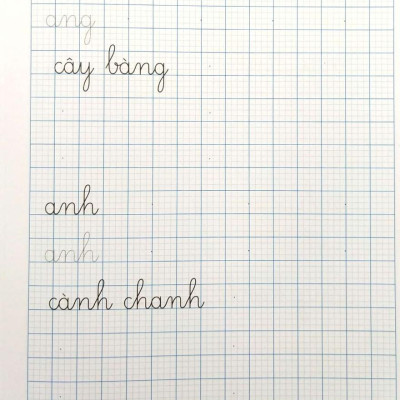 ang
cây bàng
anh
anh
cành chanh